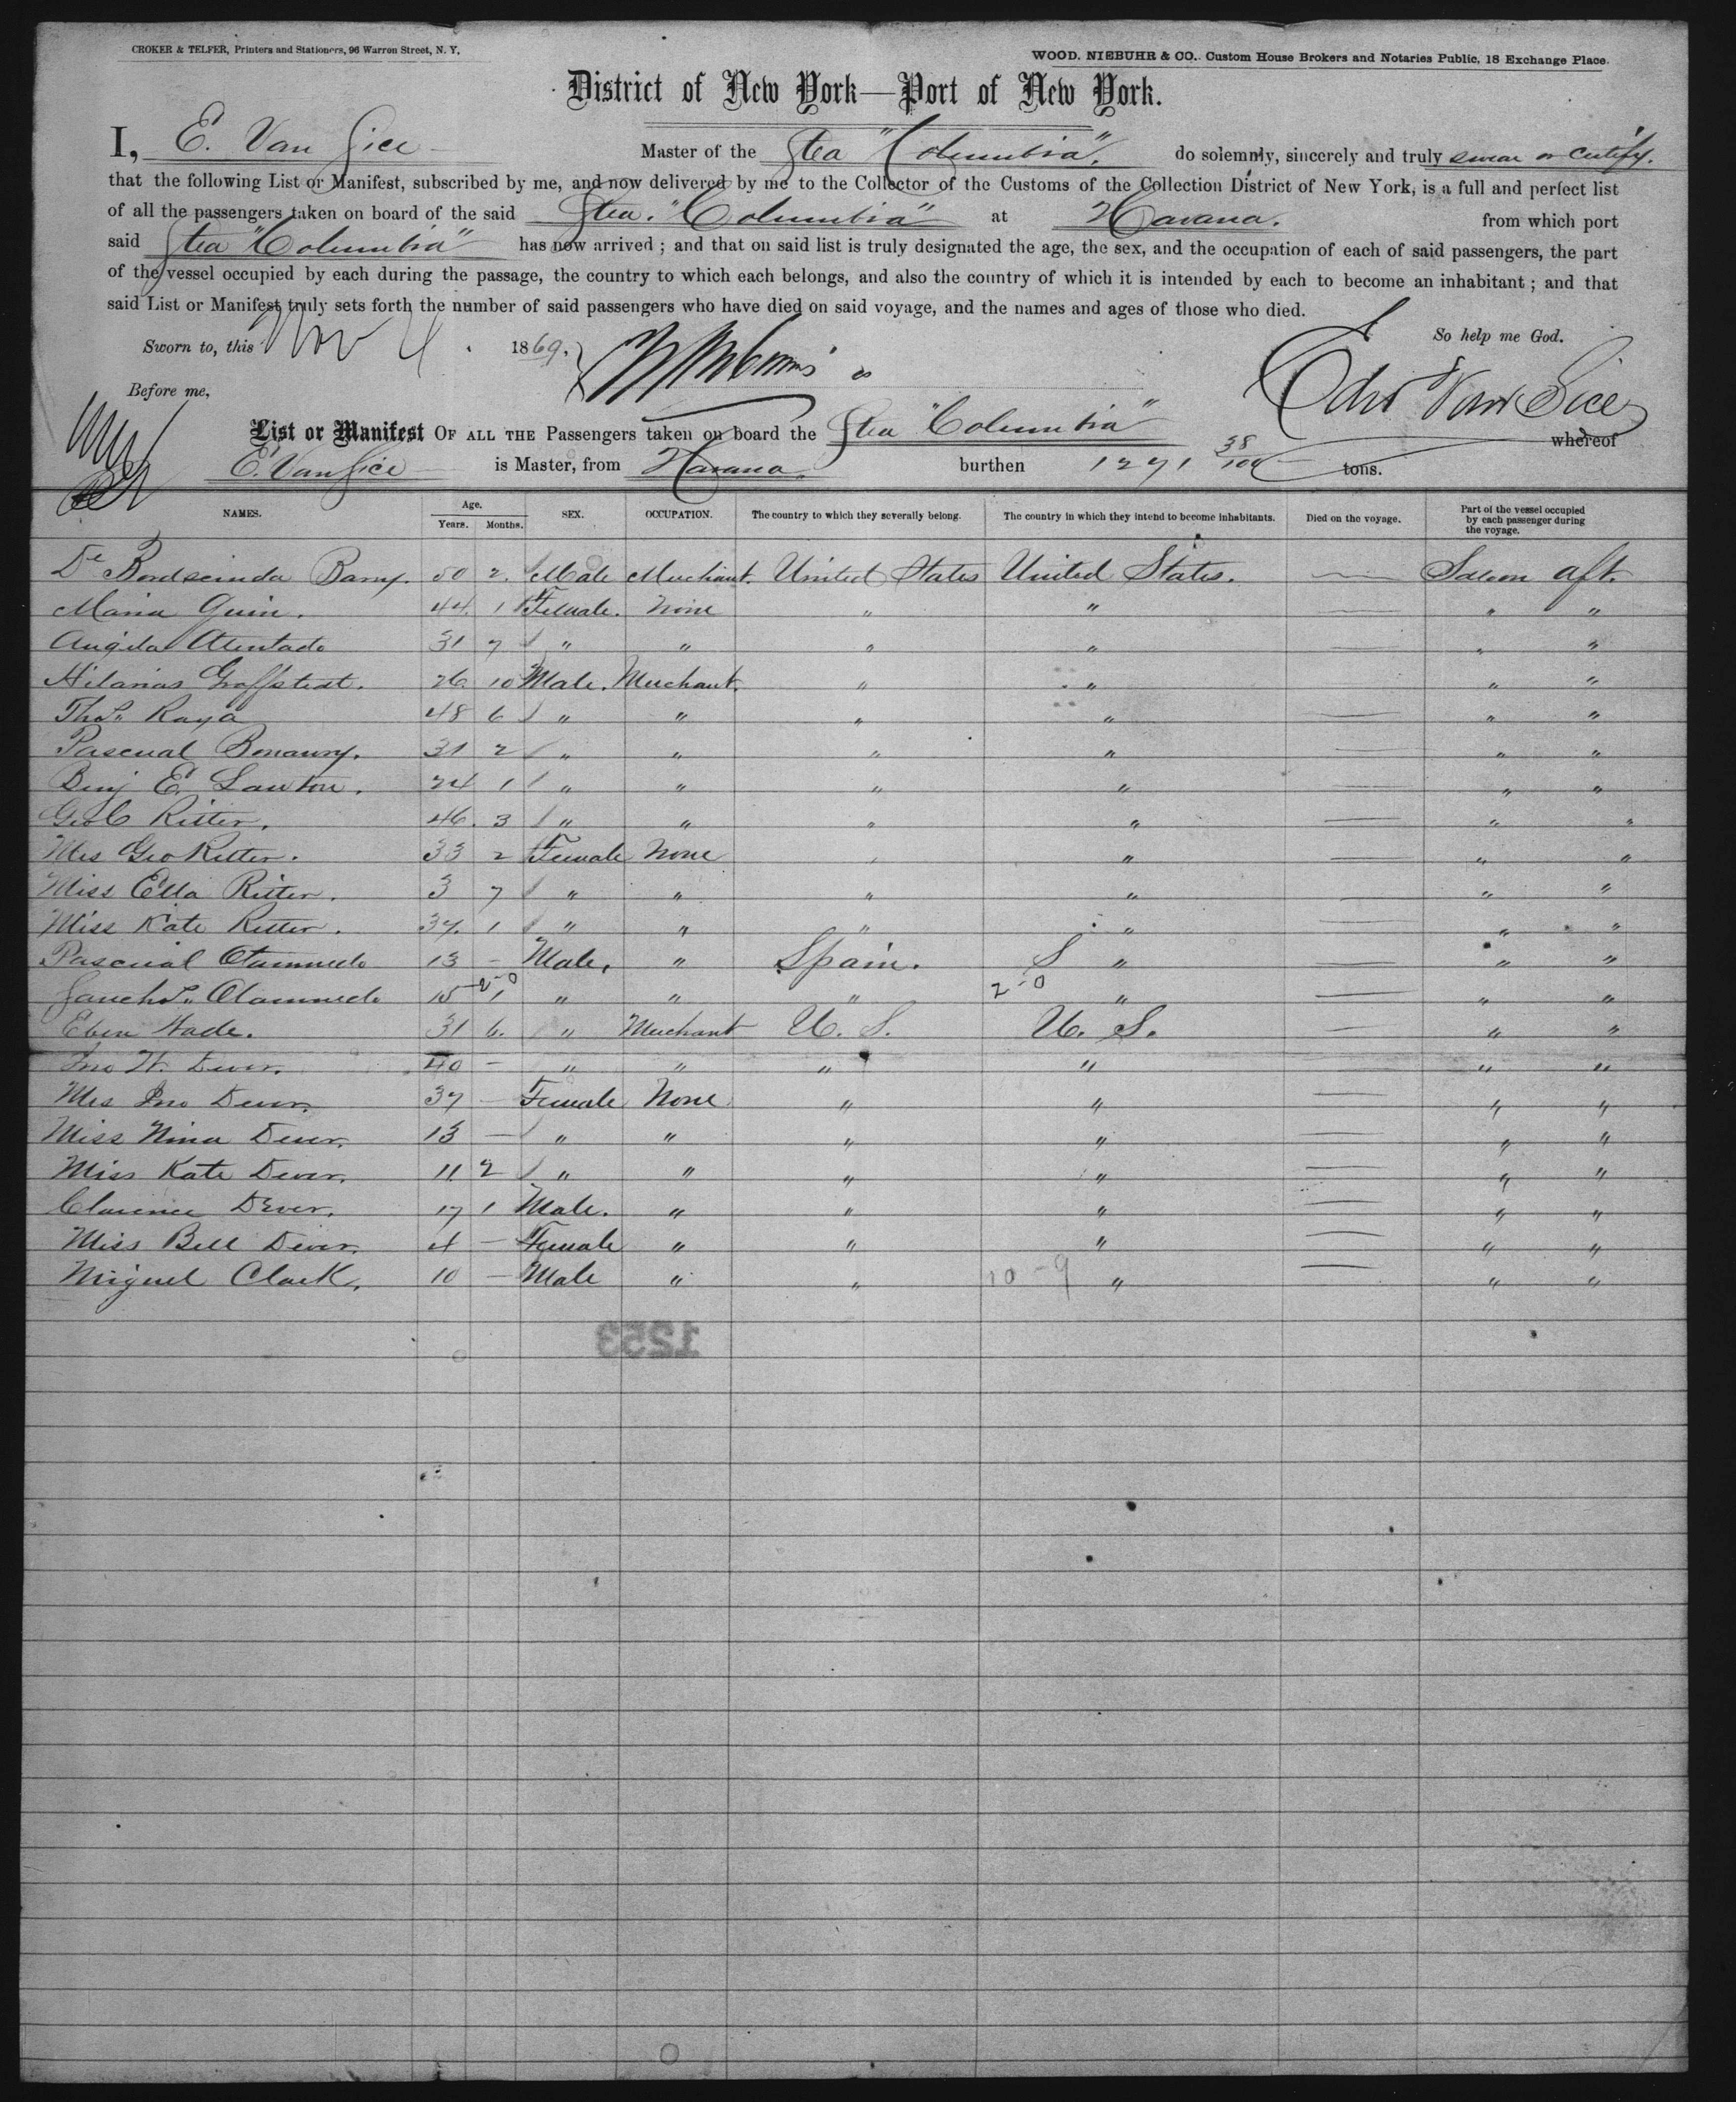 CROKER & TELFER, Printers and Stationers, 96 Warren Street, N. Y.
WOOD, NIEBUHR & CO., Custom House Brokers and Notaries Public, 18 Exchange Place.
District of New York—Port of New York.
I, E. Van Sice Master of the Stea "Columbia". do solemnly, sincerely and truly swear or certify.
that the following List or Manifest, subscribed by me, and now delivered by me to the Collector of the Customs of the Collection District of New York, is a full and perfect list
of all the passengers taken on board of the said Stea. "Columbia" at Havana. from which port
said Stea "Columbia" has now arrived ; and that on said list is truly designated the age, the sex, and the occupation of each of said passengers, the part
of the vessel occupied by each during the passage, the country to which each belongs, and also the country of which it is intended by each to become an inhabitant ; and that
said List or Manifest truly sets forth the number of said passengers who have died on said voyage, and the names and ages of those who died.
So help me God.
Sworn to, this Nov 4. 1869.
Edw Van Sice
Before me,
List or Manifest OF ALL THE Passengers taken on board the Stea "Columbia" whereof
E. Van Sice is Master, from Havana. burthen 1271 38/100 tons.
NAMES. Age. Years. Months. SEX. OCCUPATION. The country to which they severally belong. The country in which they intend to become inhabitants. Died on the voyage. Part of the vessel occupied by each passenger during the voyage.
De Barry. 50 2. Male Merchant. United States United States. — Saloon aft.
Maria Quin. 44. 1 Female. None " " — " "
Angela 31 7 " " " " — " "
Hilarius Graffstedt. 26. 10 Male. Merchant. " " " "
Thos. Raya 48 6 " " " " — " "
Pascual 31 2 " " " " — " "
Benj E. Lawton. 24 1 " " " " — " "
Geo C Ritter. 46. 3 " " " " — " "
Mrs Geo Ritter. 33 2 Female None " " — " "
Miss Ella Ritter. 3 7 " " " " — " "
Miss Kate Ritter. 37. 1 " " " " — " "
Pascual 13 - Male. " Spain. S " — " "
15 1 " " " 2-0 " — " "
2-0
Eben Wade. 31 6. " Merchant U. S. U. S. — " "
Jno W. Dever. 40 - " " " " " "
Mrs Jno Dever. 37 - Female None " " — " "
Miss Nina Dever. 13 — " " " " — " "
Miss Kate Dever. 11. 2 " " " " — " "
Clarence Dever. 17 1 Male. " " " — " "
Miss Bell Dever. 4 — Female " " " — " "
Miguel Clark. 10 — Male " " 10-9 " — " "
1253